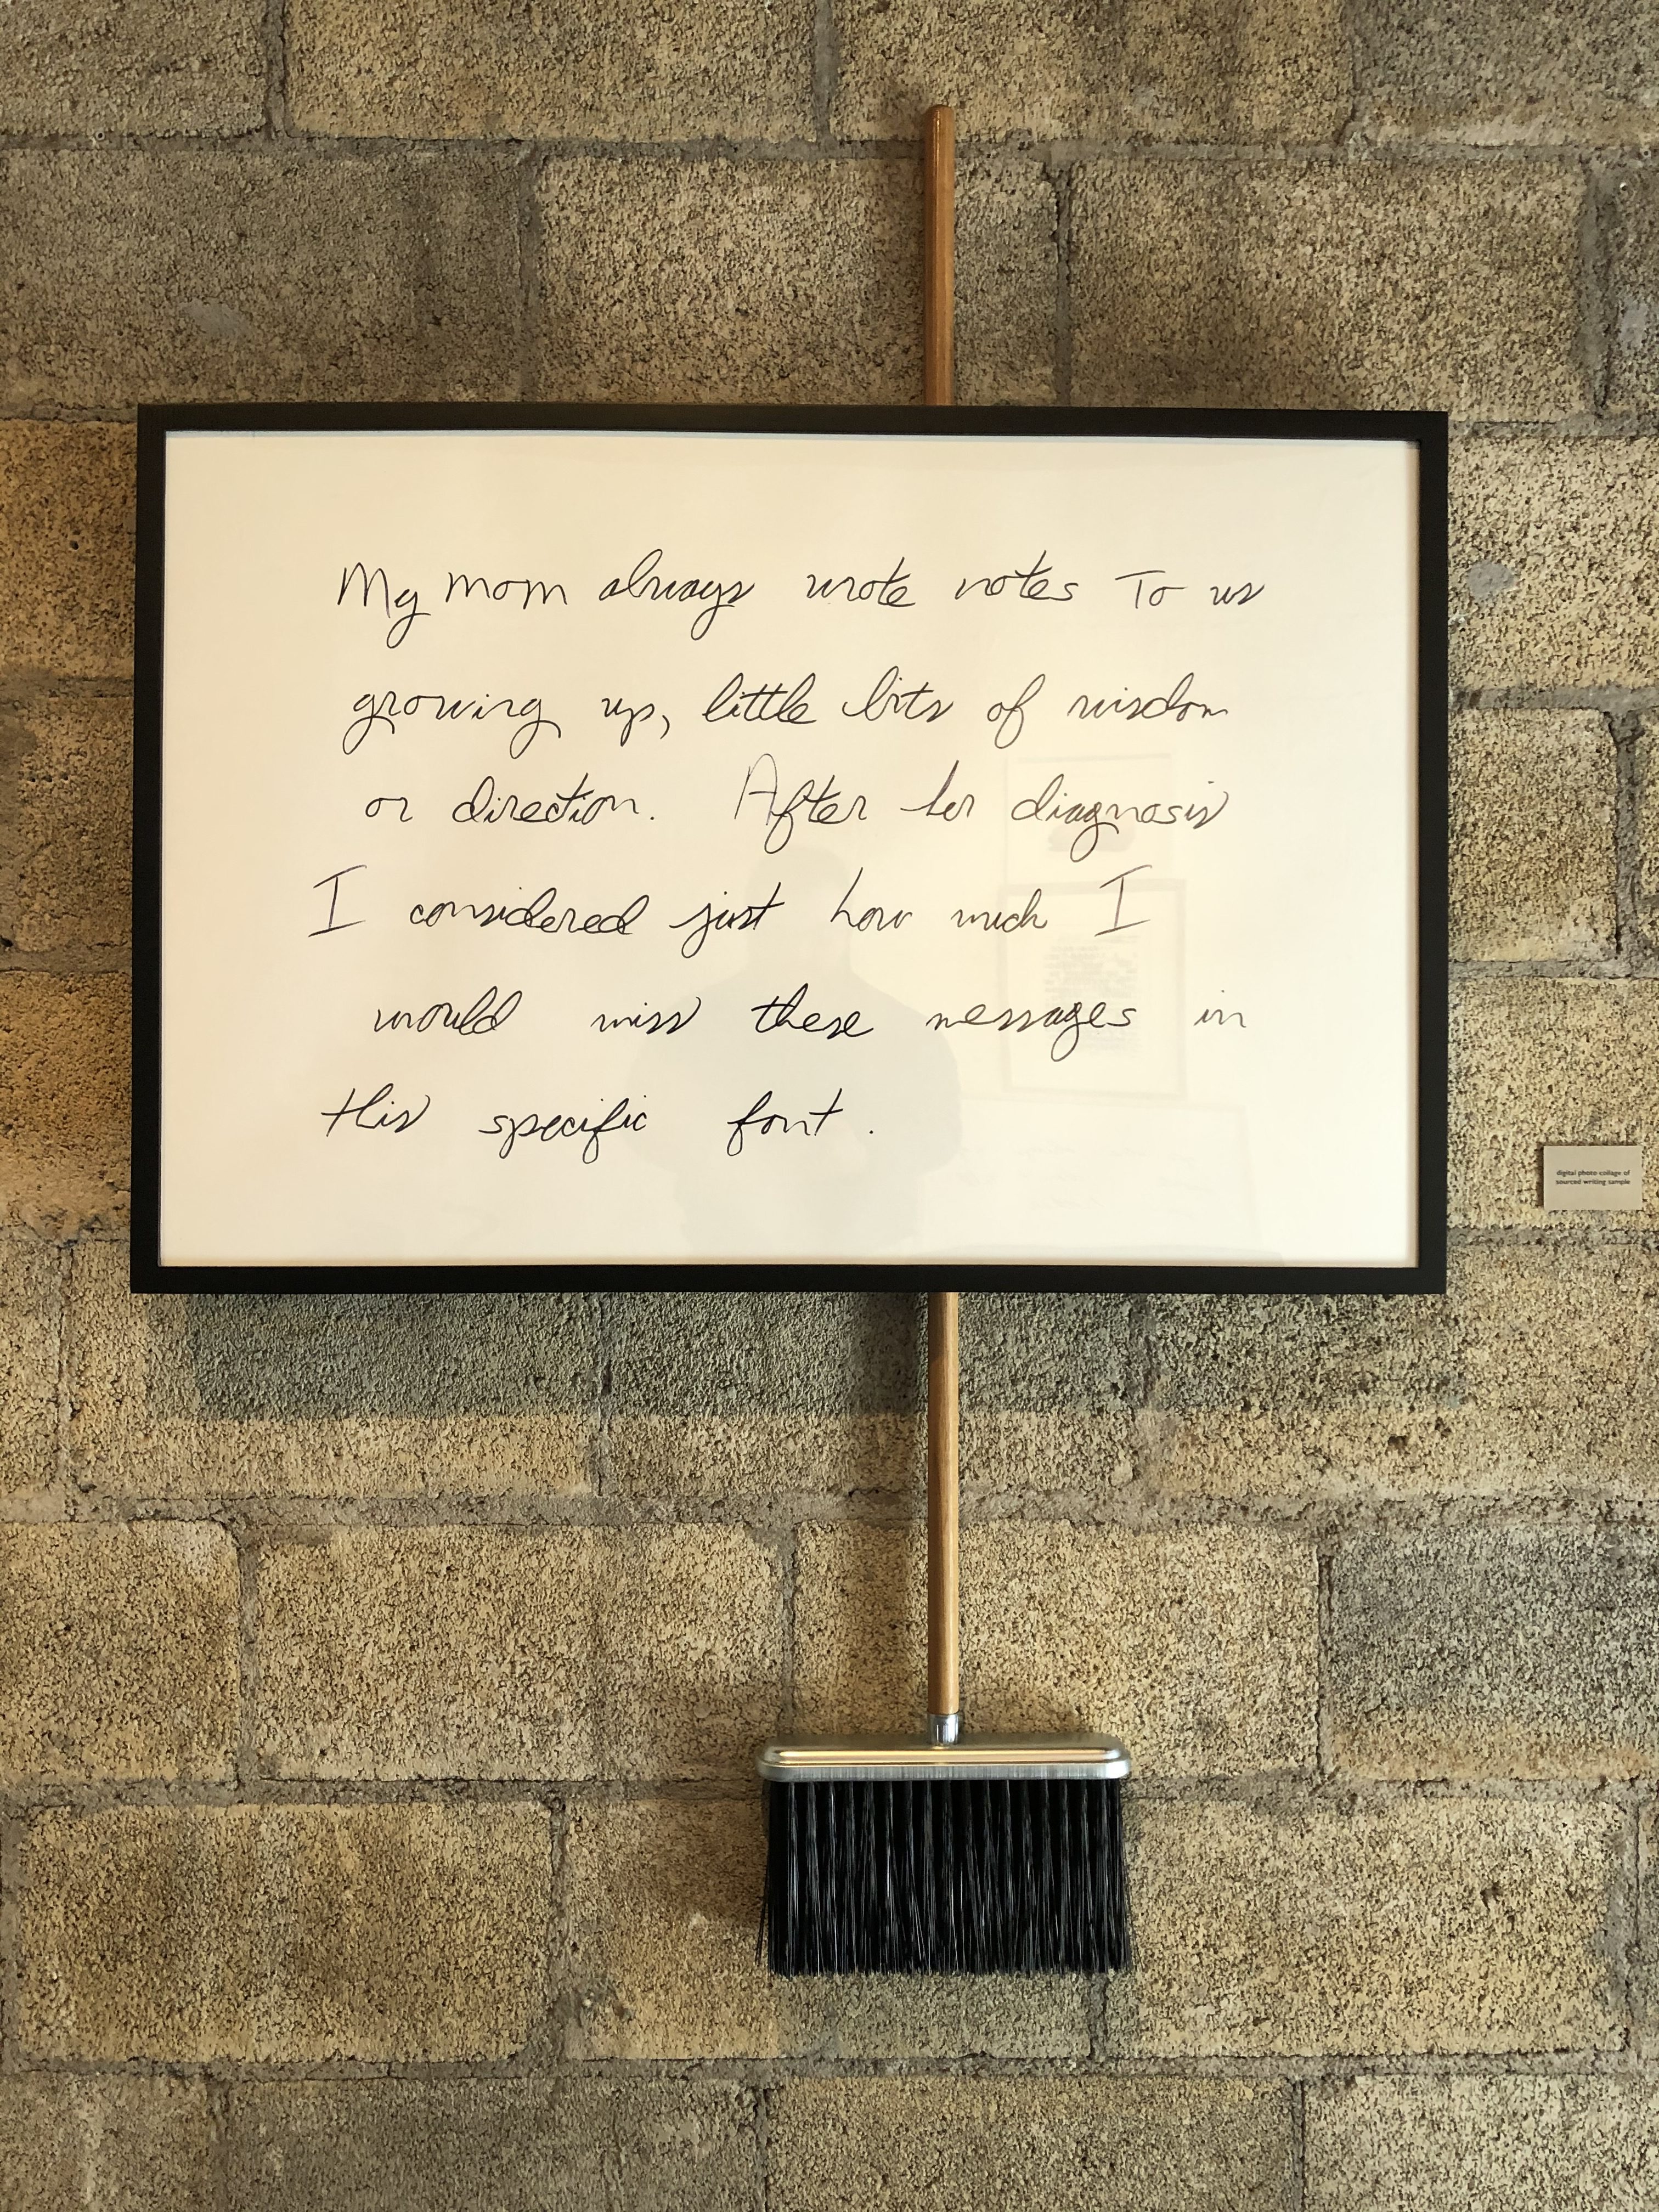 My mom always wrote notes To us
growing up, little bits of wisdom
or direction. After her diagnosis
I considered just how much I
would miss these messages in
this specific font.
digital photo collage of
sourced writing sample